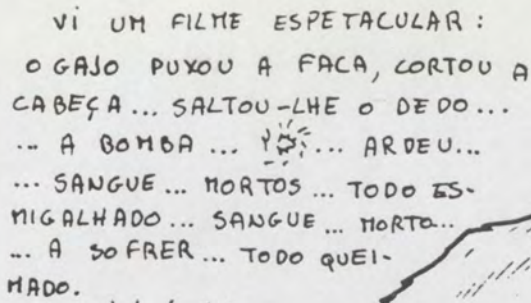 VI UM FILME ESPETACULAR:
O GAJO PUXOU A FACA, CORTOU A
CABEÇA... SALTOU-LHE O DEDO...
... A BOMBA ... ... ARDEU...
... SANGUE... MORTOS... TODO ES-
MIGALHADO... SANGUE... MORTO...
... A SOFRER... TODO QUEI-
MADO.